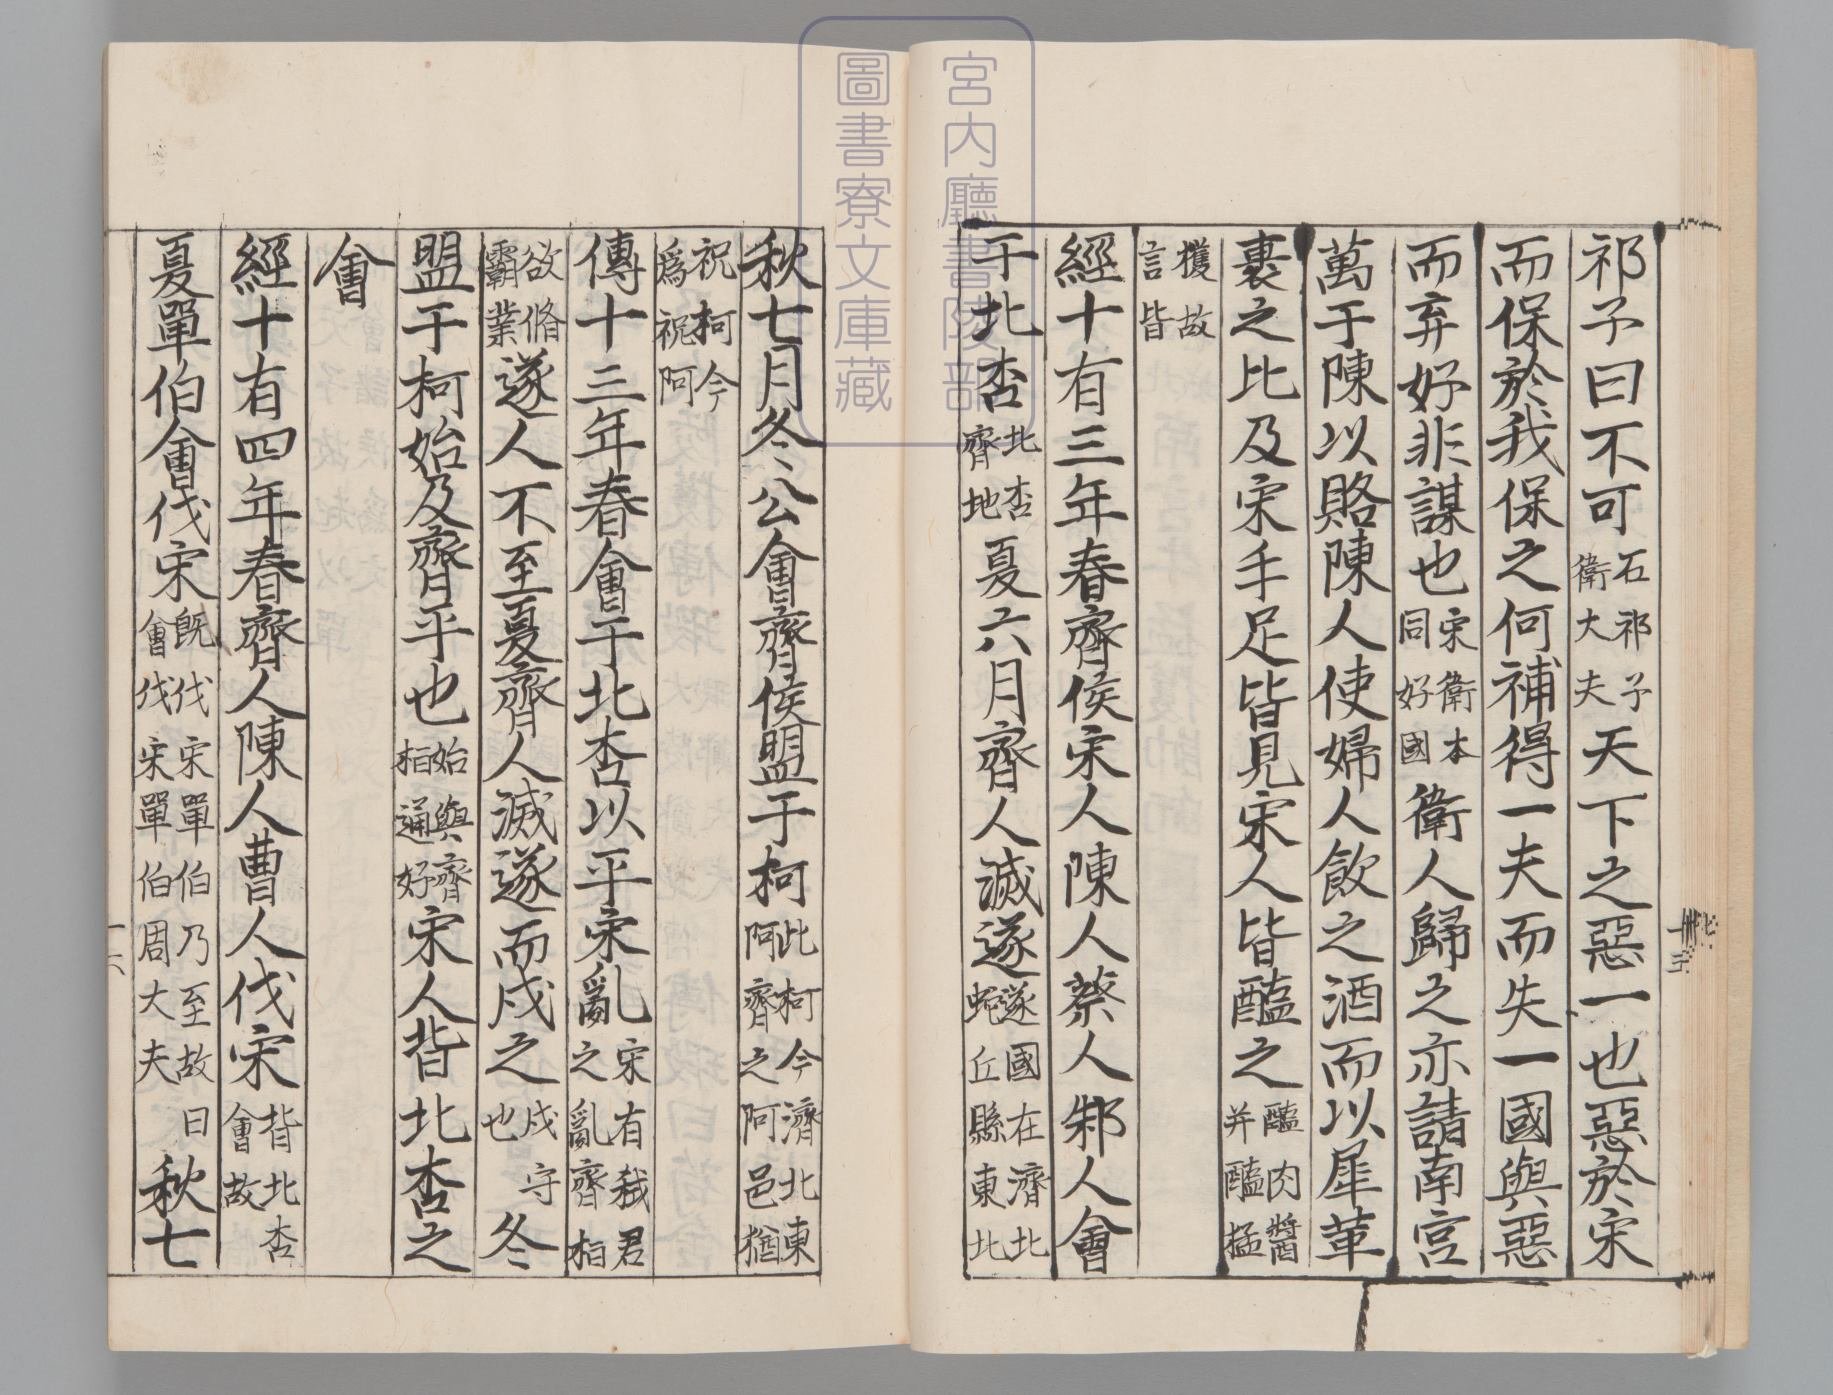 祁子曰不可石祁子衛大夫天下之惡一也惡於宋
而保於我保之何補得一夫而失一國與惡
而弃好非謀也宋衛本同好國衛人歸之亦請南宮
萬于陳以賂陳人使婦人飲之酒而以犀革
裹之比及宋手足皆見宋人皆醢之醢肉醬并醢猛
獲故言皆
經十有三年春齊侯宋人陳人蔡人邾人會
于北杏北杏齊地夏六月齊人滅遂遂國在濟北蛇丘縣東北
秋七月冬公會齊侯盟于柯此柯今濟北東阿齊之阿邑猶
祝柯今爲祝阿
傳十三年春會于北杏以平宋亂宋有弒君之亂齊桓
欲脩霸業遂人不至夏齊人滅遂而戍之戍守也冬
盟于柯始及齊平也始與齊桓通好宋人背北杏之
會
經十有四年春齊人陳人曹人伐宋背北杏會故
夏單伯會伐宋既伐宋單伯乃至故曰會伐宋單伯周大夫秋七
宮内廳書陵部
圖書寮文庫藏